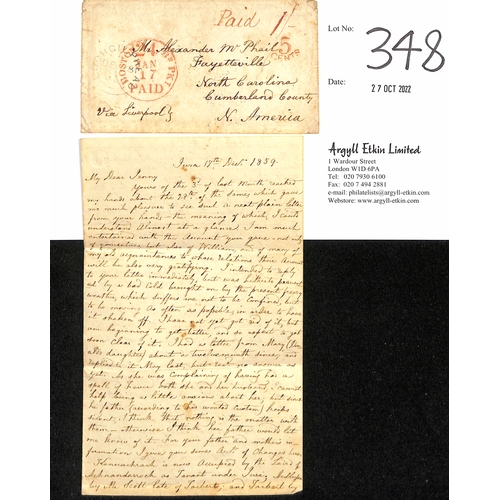 Paid 1/-
Mr. Alexander McPhail
Fayetteville
North Carolina
Cumberland County
N. America
via Liverpool
BOSTON
JAN
17
PAID
5
CENTS
Lot No:
348
Date:
27 OCT 2022
Argyll Etkin Limited
1 Wardour Street
London W1D 6PA
Tel: 020 7930 6100
Fax: 020 7 494 2881
e-mail: philatelists@argyll-etkin.com
Webstore: www.argyll-etkin.com
Jura 17th Decr. 1859.
My Dear Jenny
Yours of the 3d of last Month reached
my hands about the 28th of the same which gave
me much pleasure to see such a neat plain letter
from your hands - the meaning of which, I could
understand Almost at a glance. I am much
entertained with the Account you gave - not only
of yourselves but also of William, and of many of
my old acquaintances to whose relations the Account
will be also very gratifying. I intended to reply
to your letter immediately, but was hitherto prevent
ed by a bad cold brought on by the present frosty
weather, which suffers me not to be confined, but
to be moving as often as possible, in order to have
it shaken off. I have not yet got rid of it, but
am beginning to get better, and so expect to get
soon clear of it. I had a letter from Mary
daughter) about a twelvemonth since, and
replied to it May last, but recd. no answer as
yet. As she was complaining of having had a
spell of fever both she and her husband, I cannot
help being a little anxious about her, but since
her father (according to his wonted custom) keeps
silent, I think that nothing is the matter with
them - otherwise I think her father would let
me know of it. For your father and mothers in-
formation I give you some Acct. of Changes here.
is now Occupied by the Laird of
as Tenant under
by Mr. Scott late of Tarbert, and Tarbert by